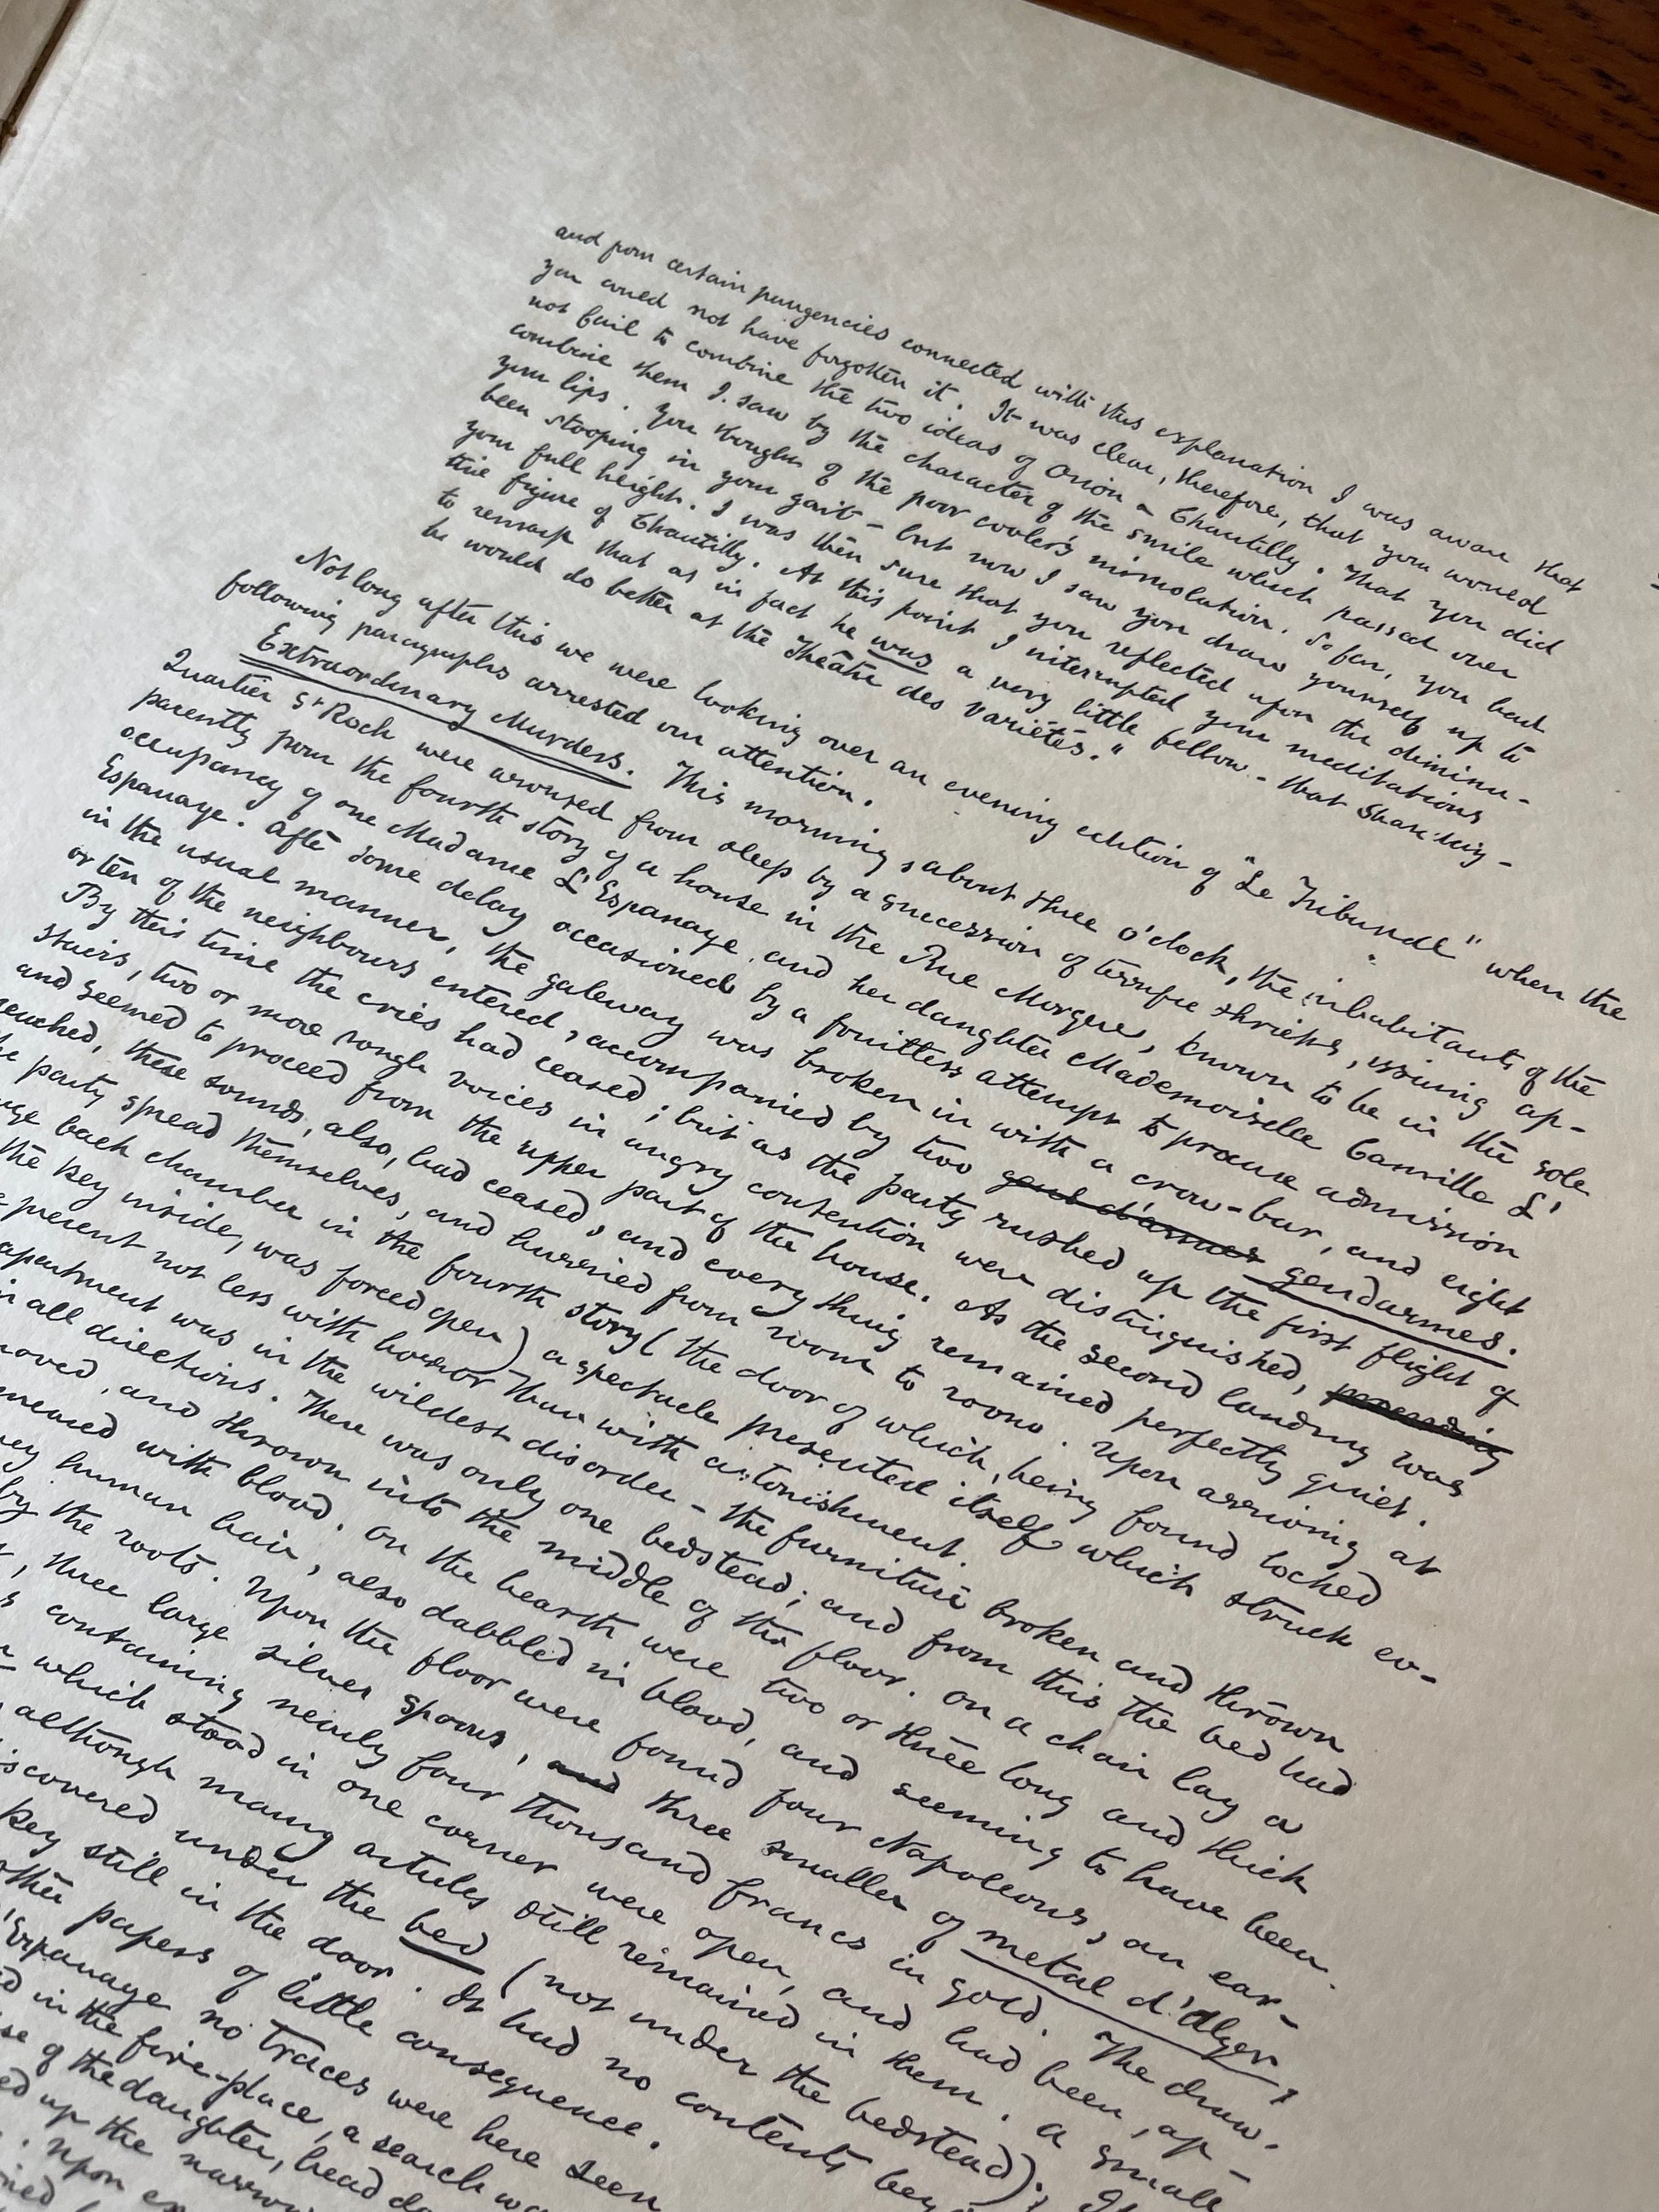 and from certain pungencies connected with this explanation I was aware that
you could not have forgotten it. It was clear, therefore, that you would
not fail to combine the two ideas of Orion & Chantilly. That you did
combine them I saw by the character of the smile which passed over
your lips. You thought of the poor cobler's immolation. So far, you had
been stooping in your gait – but now I saw you draw yourself up to
your full height. I was then sure that you reflected upon the diminu-
tive figure of Chantilly. At this point I interrupted your meditations
to remark that as in fact he was a very little fellow – that Chantilly –
he would do better at the Theâtre des Variétés."
Not long after this we were looking over an evening edition of "Le Tribunal" when the
following paragraphs arrested our attention.
Extraordinary Murders. This morning, about three o'clock, the inhabitants of the
Quartier St Roch were aroused from sleep by a succession of terrific shrieks, issuing ap-
parently from the fourth story of a house in the Rue Morgue, known to be in the sole
occupancy of one Madame L'Espanaye, and her daughter Mademoiselle Camille L'
Espanaye. After some delay occasioned by a fruitless attempt to procure admission
in the usual manner, the gateway was broken in with a crow-bar, and eight
or ten of the neighbours entered, accompanied by two gens d'armes gendarmes.
By this time the cries had ceased; but as the party rushed up the first flight of
stairs, two or more rough voices in angry contention were distinguished,
and seemed to proceed from the upper part of the house. As the second landing was
reached, these sounds, also, had ceased, and every thing remained perfectly quiet.
the party spread themselves, and hurried from room to room. Upon arriving at
back chamber in the fourth story (the door of which, being found locked
the key inside, was forced open) a spectacle presented itself which struck ev-
present not less with horror than with astonishment.
apartment was in the wildest disorder – the furniture broken and thrown
in all directions. There was only one bedstead; and from this the bed had
and thrown into the middle of the floor. On a chair lay a
with blood. On the hearth were two or three long and thick
human hair, also dabbled in blood, and seeming to have been
by the roots. Upon the floor were found four Napoleons, an ear-
three large silver spoons, and three smaller of metal d'Alger,
containing nearly four thousand francs in gold. The draw-
which stood in one corner were open, and had been, ap-
although many articles still remained in them. A small
discovered under the bed (not under the bedstead);
key still in the door. It had no contents
other papers of little consequence.
Espanaye no traces were here seen
in the fire-place, a search
of the daughter, head
up the narrow
Upon